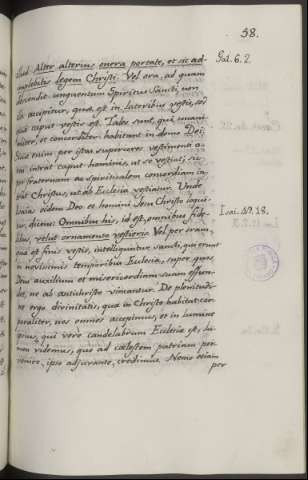 58.
illud. Alter alterius onera portate, et sic ad- Gal. 6. 2.
implebitis legem Christi. Vel ora, ad quam
descendit unguentum Spiritus Sancti, non
ea accipitur, quae est in lateribus vestis, sed
qua caput vestis est. Tales sunt, qui unani-
miter, et concorditer habitant in domo Dei.
Sicut enim per istas supervenes vestimenti o-
ras intrat caput hominis, ut se vestiat; sic
per fraternam ac spiritualem concordiam in-
trat Christus, ut ab Ecclesia vestiatur. Unde
Isaias eidem Deo et homini Jesu Christo loqui-
tur, dicens: Omnibus his, id est, omnibus fide- Isai. 49. 18.
libus, velut ornamento vestieris. Vel per oram,
quae est finis vestis, intelliguntur sancti, qui erunt
in novissimis temporibus Ecclesiae, super quos
Deus auxilium et misericordiam suam effun-
det, ne ab antichristo vincantur. De plenitudi-
ne ergo divinitatis, quae in Christo habitat cor-
poraliter, nos omnes accepimus, et in lumine
ejus, qui vere candelabrum Ecclesiae est, lu-
men videmus, quo ad caelestem patriam per-
venire, ipso adjuvante, credimus. Nemo etiam
per